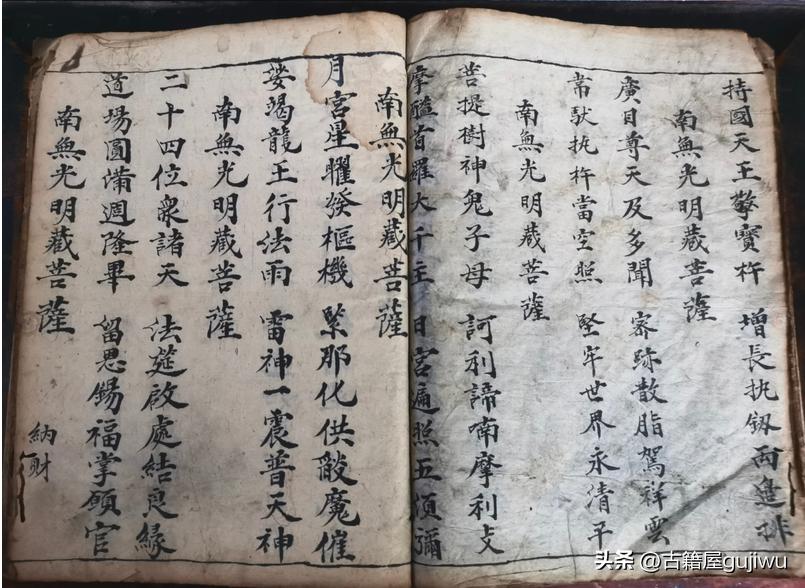 持國天王擎寶杵 增長执釼两邊排
南無光明藏菩薩
廣目尊天及多聞 密跡散脂駕祥雲
常馱执杵當空照 堅牢世界永清平
南無光明藏菩薩
菩提樹神鬼子母 訶利諦喃摩利支
摩醯首羅大千主 日宮遍照五須彌
南無光明藏菩薩
月宮星耀發樞機 緊那化供魔催
娑竭龍王行法雨 雷神一震普天神
南無光明藏菩薩
二十四位衆諸天 法筵啟處結良緣
道場圓滿週隆畢 留恩錫福掌願官
南無光明藏菩薩
納財
头条 @古籍屋gujiwu